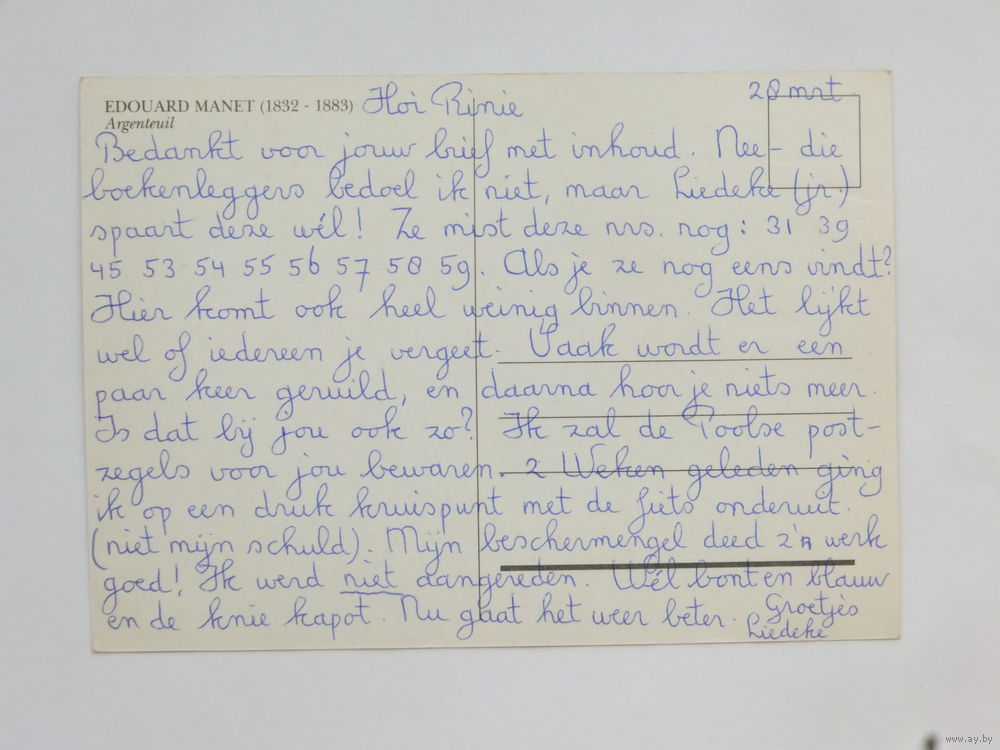 EDOUARD MANET (1832 - 1883) Hoi Rinie 28 mrt.
Argenteuil
Bedankt voor jouw brief met inhoud. Nee - die
boekenleggers bedoel ik niet, maar Liedeke (jr.)
spaart deze wél! Ze mist deze nrs. nog: 31 39
45 53 54 55 56 57 58 59. Als je ze nog eens vindt?
Hier komt ook heel weinig binnen. Het lijkt
wel of iedereen je vergeet. Vaak wordt er een
paar keer geruild, en daarna hoor je niets meer.
Is dat bij jou ook zo? Ik zal de Poolse post-
zegels voor jou bewaren. 2 Weken geleden ging
ik op een druk kruispunt met de fiets onderuit.
(niet mijn schuld). Mijn beschermengel deed z'n werk
goed! Ik werd niet aangereden. Wél bont en blauw
en de knie kapot. Nu gaat het weer beter. Groetjes
Liedeke
www.ay.by